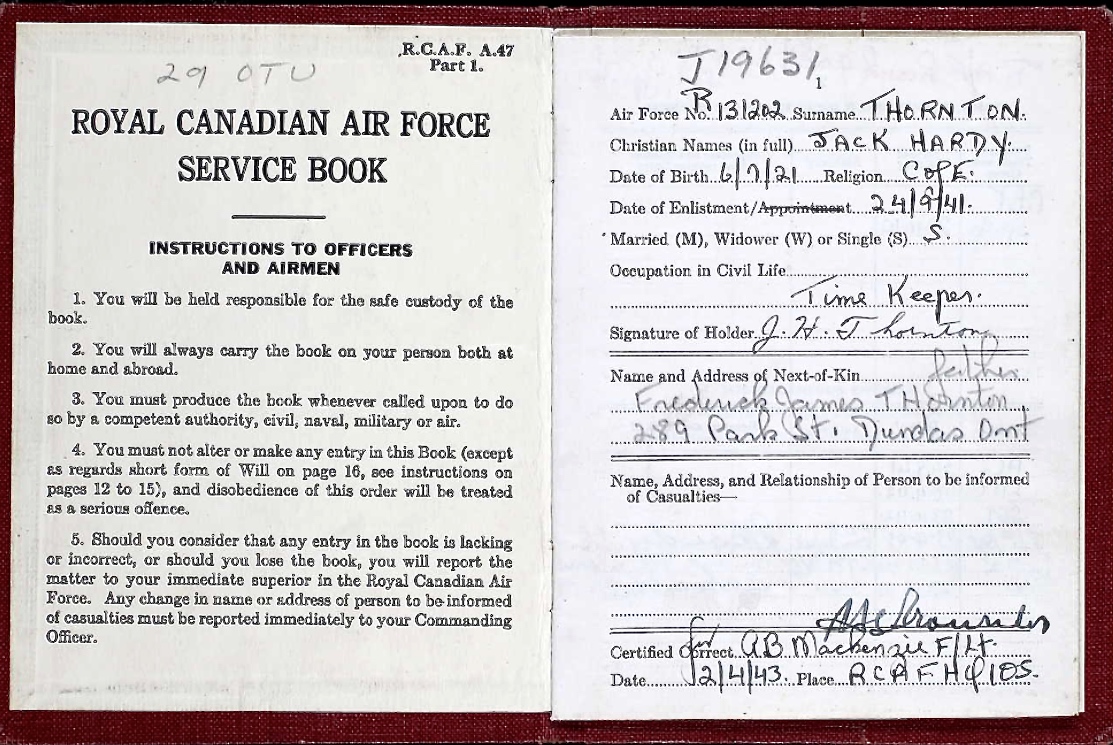 R.C.A.F. A.47
Part 1.
29 OTU
ROYAL CANADIAN AIR FORCE
SERVICE BOOK
INSTRUCTIONS TO OFFICERS
AND AIRMEN
1. You will be held responsible for the safe custody of the
book.
2. You will always carry the book on your person both at
home and abroad.
3. You must produce the book whenever called upon to do
so by a competent authority, civil, naval, military or air.
4. You must not alter or make any entry in this Book (except
as regards short form of Will on page 16, see instructions on
pages 12 to 15), and disobedience of this order will be treated
as a serious offence.
5. Should you consider that any entry in the book is lacking
or incorrect, or should you lose the book, you will report the
matter to your immediate superior in the Royal Canadian Air
Force. Any change in name or address of person to be informed
of casualties must be reported immediately to your Commanding
Officer.
J19631
1
Air Force No. R131202 Surname THORNTON.
Christian Names (in full) JACK HARDY.
Date of Birth 6/7/21 Religion C of E.
Date of Enlistment/Appointment 24/9/41.
Married (M), Widower (W) or Single (S) S.
Occupation in Civil Life
Time Keeper.
Signature of Holder J. H. Thornton
Name and Address of Next-of-Kin father
Frederick James THornton
289 Park St. Dundas Ont
Name, Address, and Relationship of Person to be informed
of Casualties—
Certified Correct for AB Mackenzie F/Lt.
Date 12/4/43. Place RCAF HQ IOS.